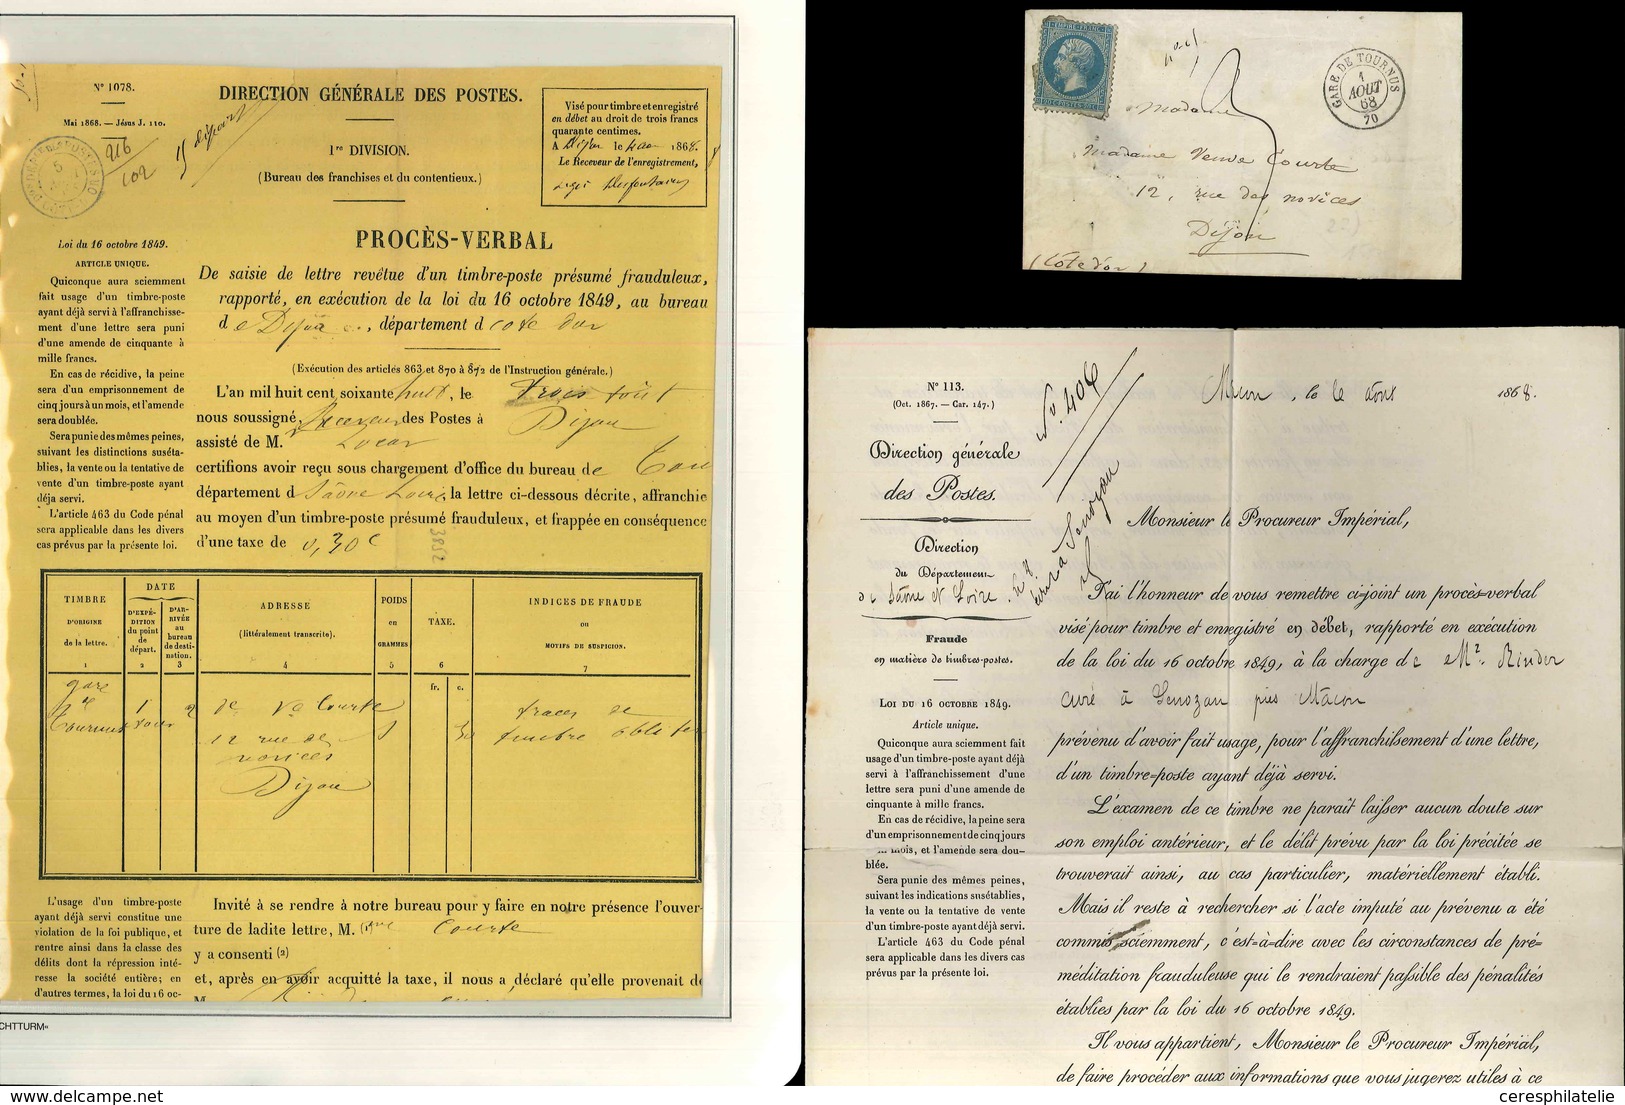 N° 1078.
Mai 1868. — Jésus J. 110.
216
102
DIRECTION GÉNÉRALE DES POSTES.
1re DIVISION.
(Bureau des franchises et du contentieux.)
Visé pour timbre et enregistré
en débet au droit de trois francs
quarante centimes.
A Dijon le 4 août 1868.
Le Receveur de l'enregistrement,
PROCÈS-VERBAL
De saisie de lettre revêtue d'un timbre-poste présumé frauduleux,
rapporté, en exécution de la loi du 16 octobre 1849, au bureau
de Dijon, département d cote dor
(Exécution des articles 863 et 870 à 872 de l'Instruction générale.)
L'an mil huit cent soixante huit, le trois août
nous soussigné, Receveur des Postes à Dijon
assisté de M.
certifions avoir reçu sous chargement d'office du bureau de
département d Saône Loire, la lettre ci-dessous décrite, affranchie
au moyen d'un timbre-poste présumé frauduleux, et frappée en conséquence
d'une taxe de 0,30 c
3852
Loi du 16 octobre 1849.
ARTICLE UNIQUE.
Quiconque aura sciemment
fait usage d'un timbre-poste
ayant déjà servi à l'affranchisse-
ment d'une lettre sera puni
d'une amende de cinquante à
mille francs.
En cas de récidive, la peine
sera d'un emprisonnement de
cinq jours à un mois, et l'amende
sera doublée.
Sera punie des mêmes peines,
suivant les distinctions suséta-
blies, la vente ou la tentative de
vente d'un timbre-poste ayant
déja servi.
L'article 463 du Code pénal
sera applicable dans les divers
cas prévus par la présente loi.
TIMBRE
D'ORIGINE
de la lettre.
1
DATE
D'EXPÉ-
DITION
du point
de
départ.
2
D'AR-
RIVÉE
au
bureau
de desti-
nation.
3
ADRESSE
(littéralement transcrite).
4
POIDS
en
GRAMMES
5
TAXE.
6
fr. c.
INDICES DE FRAUDE
OU
MOTIFS DE SUSPICION.
7
gare
de
Tournus
1
août
2
de Ve Courte
12 rue des
novices
Dijon
30
traces de
timbre oblitéré
L'usage d'un timbre-poste
ayant déjà servi constitue une
violation de la foi publique, et
rentre ainsi dans la classe des
délits dont la répression inté-
resse la société entière; en
d'autres termes, la loi du 16 oc-
Invité à se rendre à notre bureau pour y faire en notre présence l'ouver-
ture de ladite lettre, M. me Courte
y a consenti (2)
et, après en avoir acquitté la taxe, il nous a déclaré qu'elle provenait de
M.
CHTTURM»
EMPIRE FRANC
20 C POSTES 20 C
GARE DE TOURNUS
1
AOUT
68
70
Madame
Madame Veuve Courte
12, rue des novices
Dijon
(Cote d'or)
N° 113.
(Oct. 1867. — Car. 147.)
N° 406
Mâcon, le 6 août 1868.
Direction générale
des Postes.
Direction
du Département
de Saône et Loire.
Fraude
en matière de timbres-postes.
LOI DU 16 OCTOBRE 1849.
Article unique.
Quiconque aura sciemment fait
usage d'un timbre-poste ayant déjà
servi à l'affranchissement d'une
lettre sera puni d'une amende de
cinquante à mille francs.
En cas de récidive, la peine sera
d'un emprisonnement de cinq jours
mois, et l'amende sera dou-
blée.
Sera punie des mêmes peines,
suivant les indications susétablies,
la vente ou la tentative de vente
d'un timbre-poste ayant déjà servi.
L'article 463 du Code pénal
sera applicable dans les divers cas
prévus par la présente loi.
Monsieur le Procureur Impérial,
J'ai l'honneur de vous remettre ci-joint un procès-verbal
visé pour timbre et enregistré en débet, rapporté en exécution
de la loi du 16 octobre 1849, à la charge de Mr Rinder
curé à Senozan près Mâcon
prévenu d'avoir fait usage, pour l'affranchissement d'une lettre,
d'un timbre-poste ayant déjà servi.
L'examen de ce timbre ne paraît laisser aucun doute sur
son emploi antérieur, et le délit prévu par la loi précitée se
trouverait ainsi, au cas particulier, matériellement établi.
Mais il reste à rechercher si l'acte imputé au prévenu a été
commis sciemment, c'est-à-dire avec les circonstances de pré-
méditation frauduleuse qui le rendraient passible des pénalités
établies par la loi du 16 octobre 1849.
Il vous appartient, Monsieur le Procureur Impérial,
de faire procéder aux informations que vous jugerez utiles à ce
www.delcampe.net
ceresphilatelie